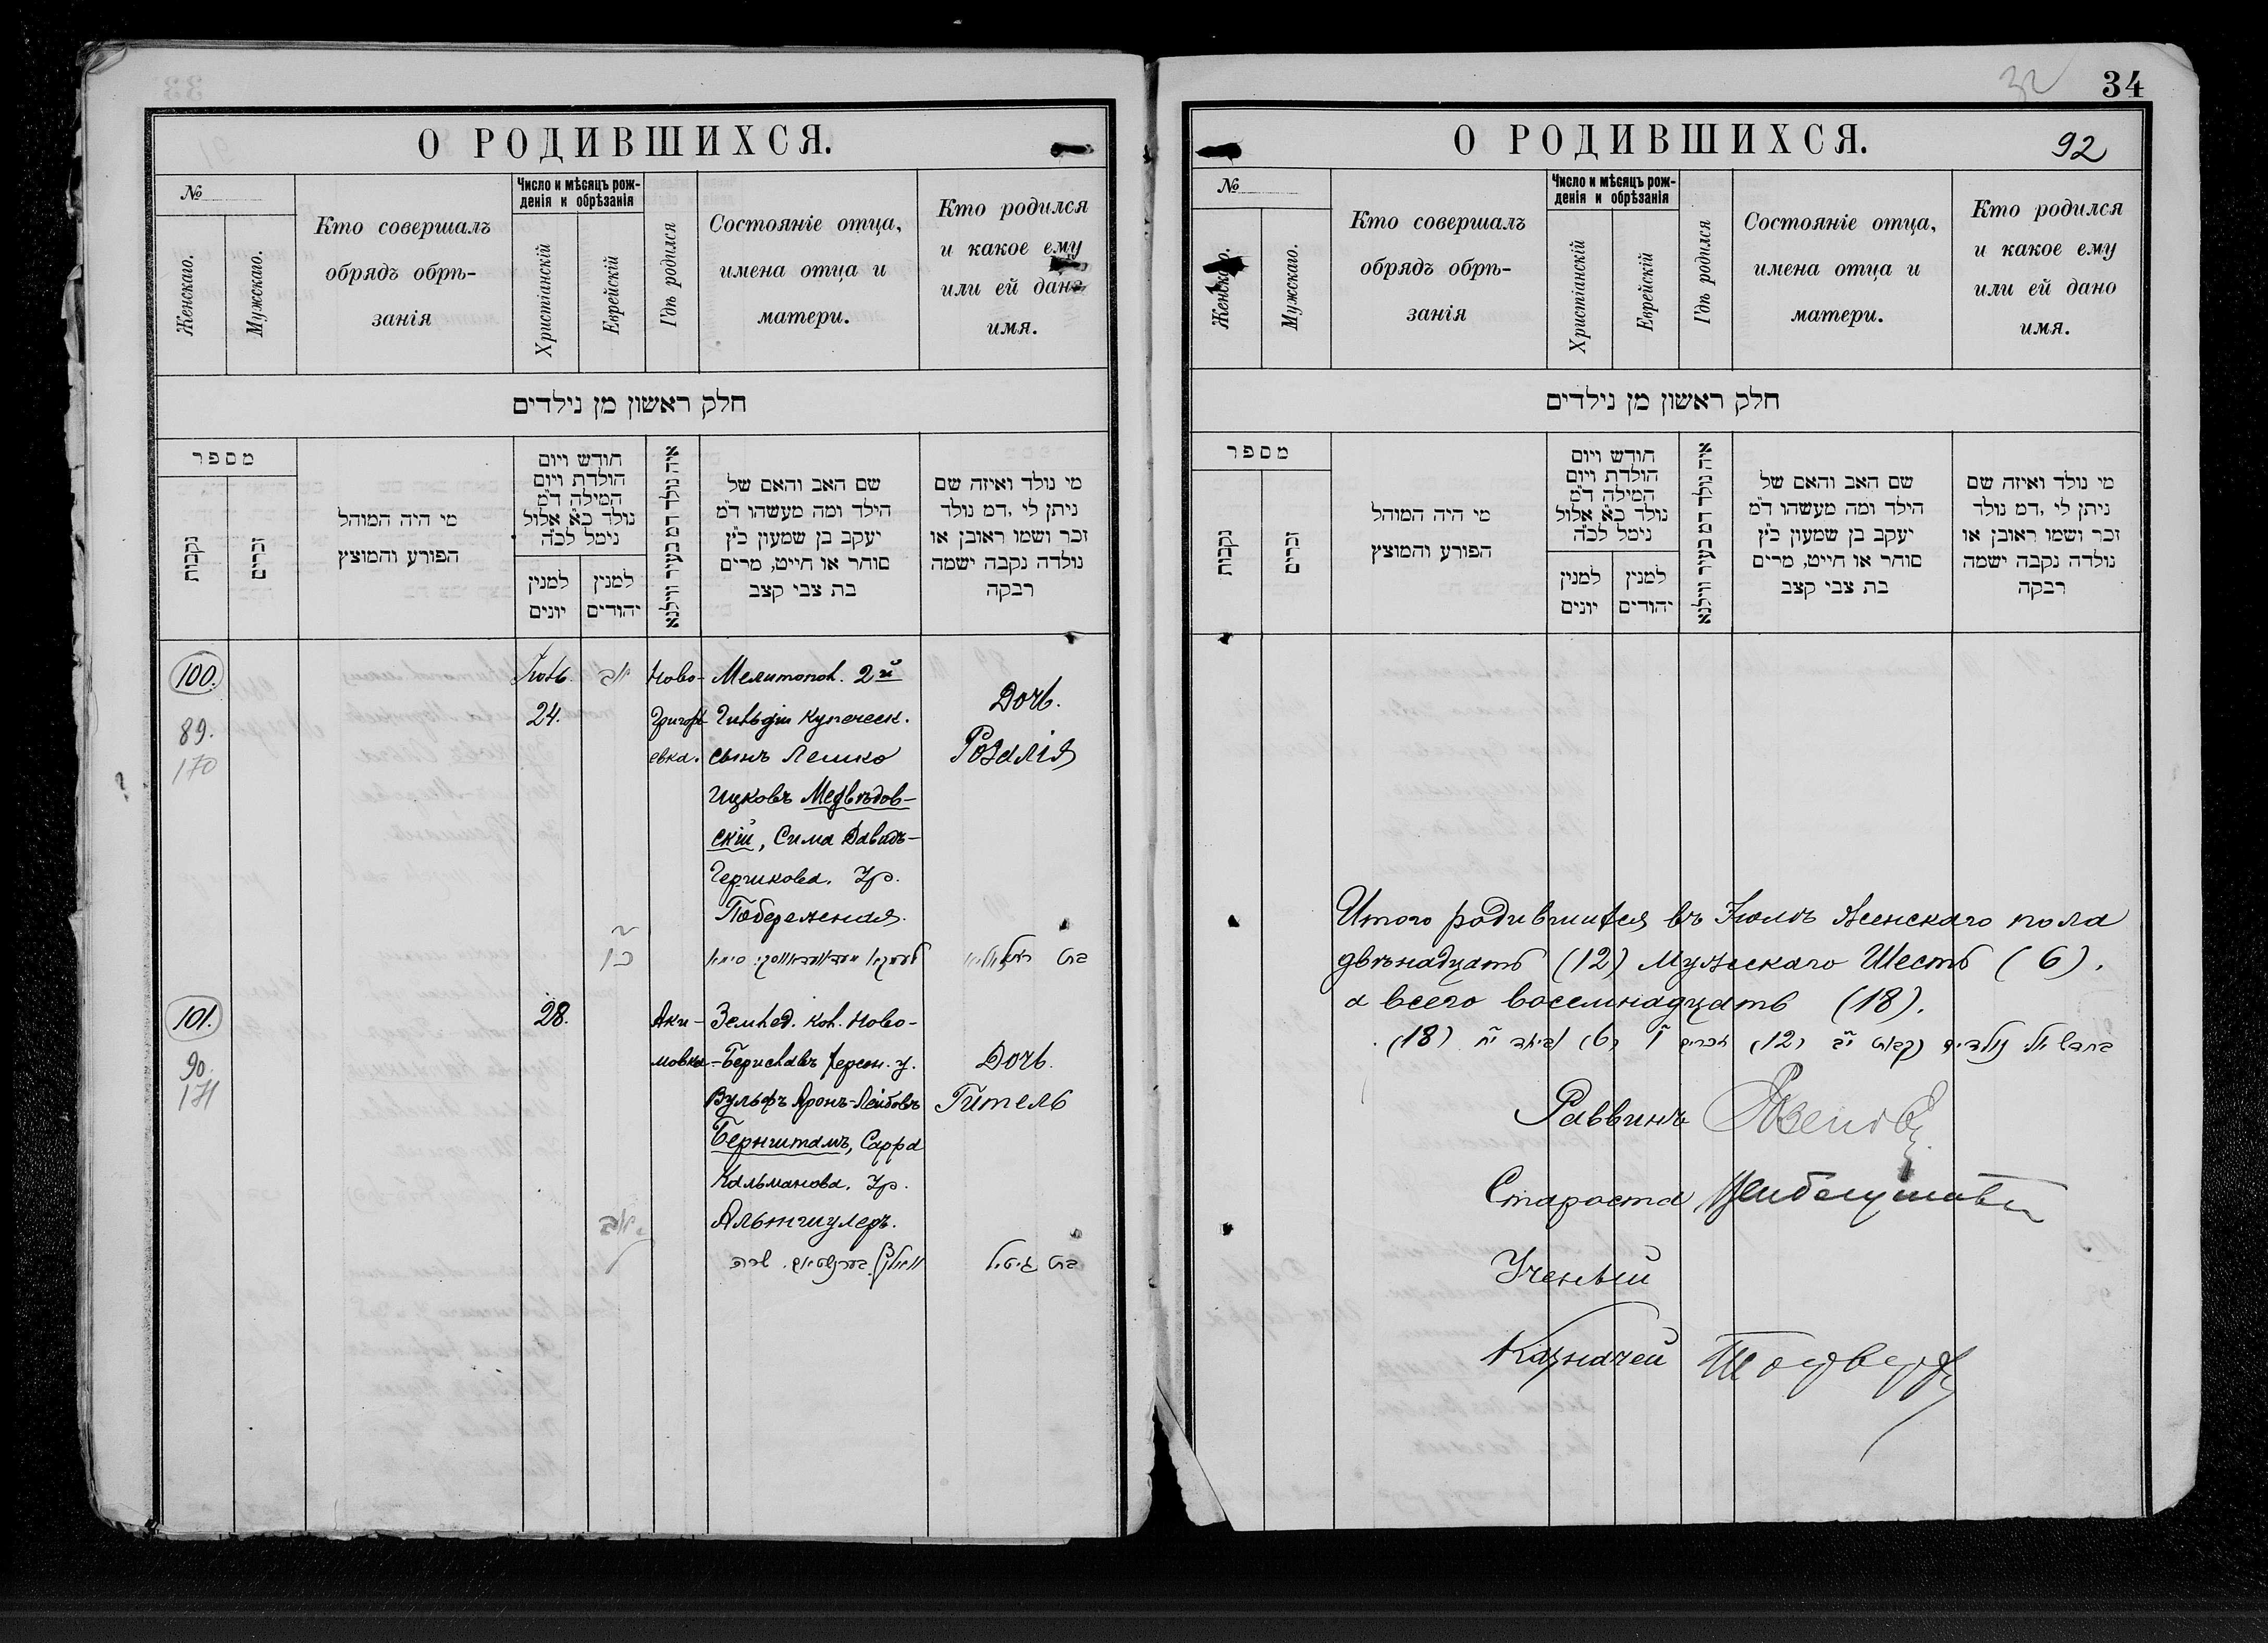 О РОДИВШИХСЯ.
№
Женскаго.
Мужскаго.
Кто совершалъ
обрядъ обрѣ-
занія
Число и мѣсяцъ рож-
денія и обрѣзанія
Христіанскій
Еврейскій
Гдѣ родился
Состояніе отца,
имена отца и
матери.
Кто родился
и какое ему
или ей дано
имя.
חלק ראשון מן נילדים
מספר
נקבות
זכרים
מי היה המוהל
הפורע והמוצץ
חודש ויום
הולדת ויום
המילה ד"מ
נולד כ"א אלול
נימל לכ"ה
למנין
יונים
למנין
יהודים
איה נולד דמ בעיר ווילנא
שם האב והאם של
הילד ומה מעשהו ד"מ
יעקב בן שמעון כ"ץ
סוחר או חייט, מרים
בת צבי קצב
מי נולד ואיזה שם
ניתן לי ,דמ נולד
זכר ושמו ראובן או
נולדה נקבה ישמה
רבקה
100.
89.
170
24.
Ново-
Григорь-
евка.
Мелитопол. 2й
Гильдіи купеческ.
сынъ Лешко
Ицковъ Медвѣдов-
скій, Сима Давидъ-
Герчикова. Ур.
Побережная.
Дочь.
Розалія
בת
101.
90.
171
28.
Аки-
мовка
Землед. кол. Ново-
Бериславъ Херсон. у.
Вульфъ Аронъ-Лейбовъ
Бернштамъ, Сарра
Кальманова. Ур.
Альтшулеръ.
שרה
Дочь.
Гитель
בת גיטיל
32
34
О РОДИВШИХСЯ.
92
№
Женскаго.
Мужскаго.
Кто совершалъ
обрядъ обрѣ-
занія
Число и мѣсяцъ рож-
денія и обрѣзанія
Христіанскій
Еврейскій
Гдѣ родился
Состояніе отца,
имена отца и
матери.
Кто родился
и какое ему
или ей дано
имя.
חלק ראשון מן נילדים
מספר
נקבות
זכרים
מי היה המוהל
הפורע והמוצץ
חודש ויום
הולדת ויום
המילה ד"מ
נולד כ"א אלול
נימל לכ"ה
למנין
יונים
למנין
יהודים
איה נולד דמ בעיר ווילנא
שם האב והאם של
הילד ומה מעשהו ד"מ
יעקב בן שמעון כ"ץ
סוחר או חייט, מרים
בת צבי קצב
מי נולד ואיזה שם
ניתן לי ,דמ נולד
זכר ושמו ראובן או
נולדה נקבה ישמה
רבקה
Итого родившихся въ Іюлѣ женскаго пола
двѣнадцать (12) мужескаго Шесть (6).
а всего восемнадцать (18).
נקבות י"ב (12) זכרים ו' (6) (18).
Раввинъ
Староста
Ученый
Казначей